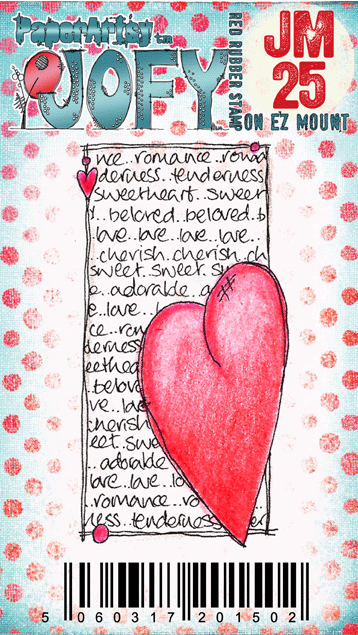 PaperArtsy tm
JOFY
RED RUBBER STAMP
JM
25
ON EZ MOUNT
nce..romance..roman
derness..tenderness
sweetheart..sweet
..beloved..beloved.b
love...love..love..love...
.cherish.cherish.ch
sweet.sweet.sw
e..adorable..a
e..love..l
ce..rom
derness
weethea
belov
ve..love
cherish
eet.swe
..adorable
love..love..lo
..romance..ro
ness..tenderness..der
5 060317 201502